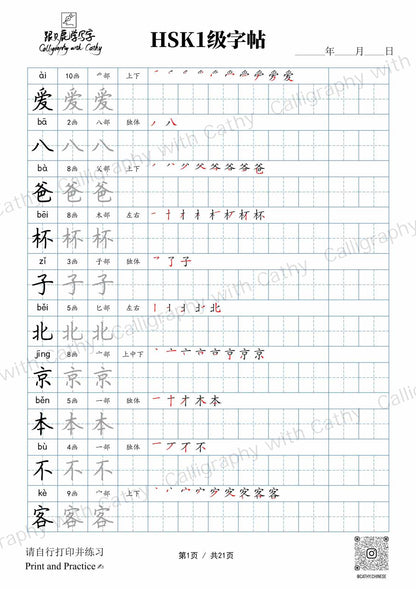 Calligraphy with Cathy
HSK1级字帖
年 月 日
ài 10画 爫部 上下
爱 爱 爱
bā 2画 八部 独体
八 八 八
bà 8画 父部 上下
爸 爸 爸
bēi 8画 木部 左右
杯 杯 杯
zǐ 3画 子部 独体
子 子 子
běi 5画 匕部 左右
北 北 北
jīng 8画 亠部 上中下
京 京 京
běn 5画 一部 独体
本 本 本
bù 4画 一部 独体
不 不 不
kè 9画 宀部 上下
客 客 客
请自行打印并练习
Print and Practice
第1页 / 共21页
@CATHY.CHINESE
Calligraphy with Cathy